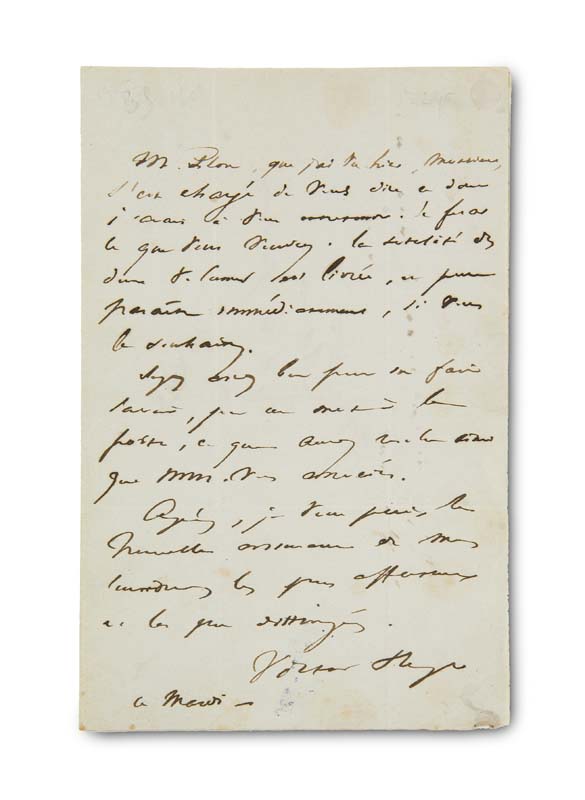 M. Plon, que j'ai vu hier, Monsieur,
s'est chargé de vous dire ce dont
j'avais à vous. Je ferai
ce que vous voudrez. la
est livrée, et peut
paraître immédiatement, si vous
le souhaitez.
Soyez assez bon pour me faire
savoir, par un mot à la
poste, ce que aurez
que MM. vos associés.
Agréez, je vous prie, la
nouvelle assurance de mes
sentiments les plus affectueux
et les plus distingués.
Victor Hugo
ce mardi –